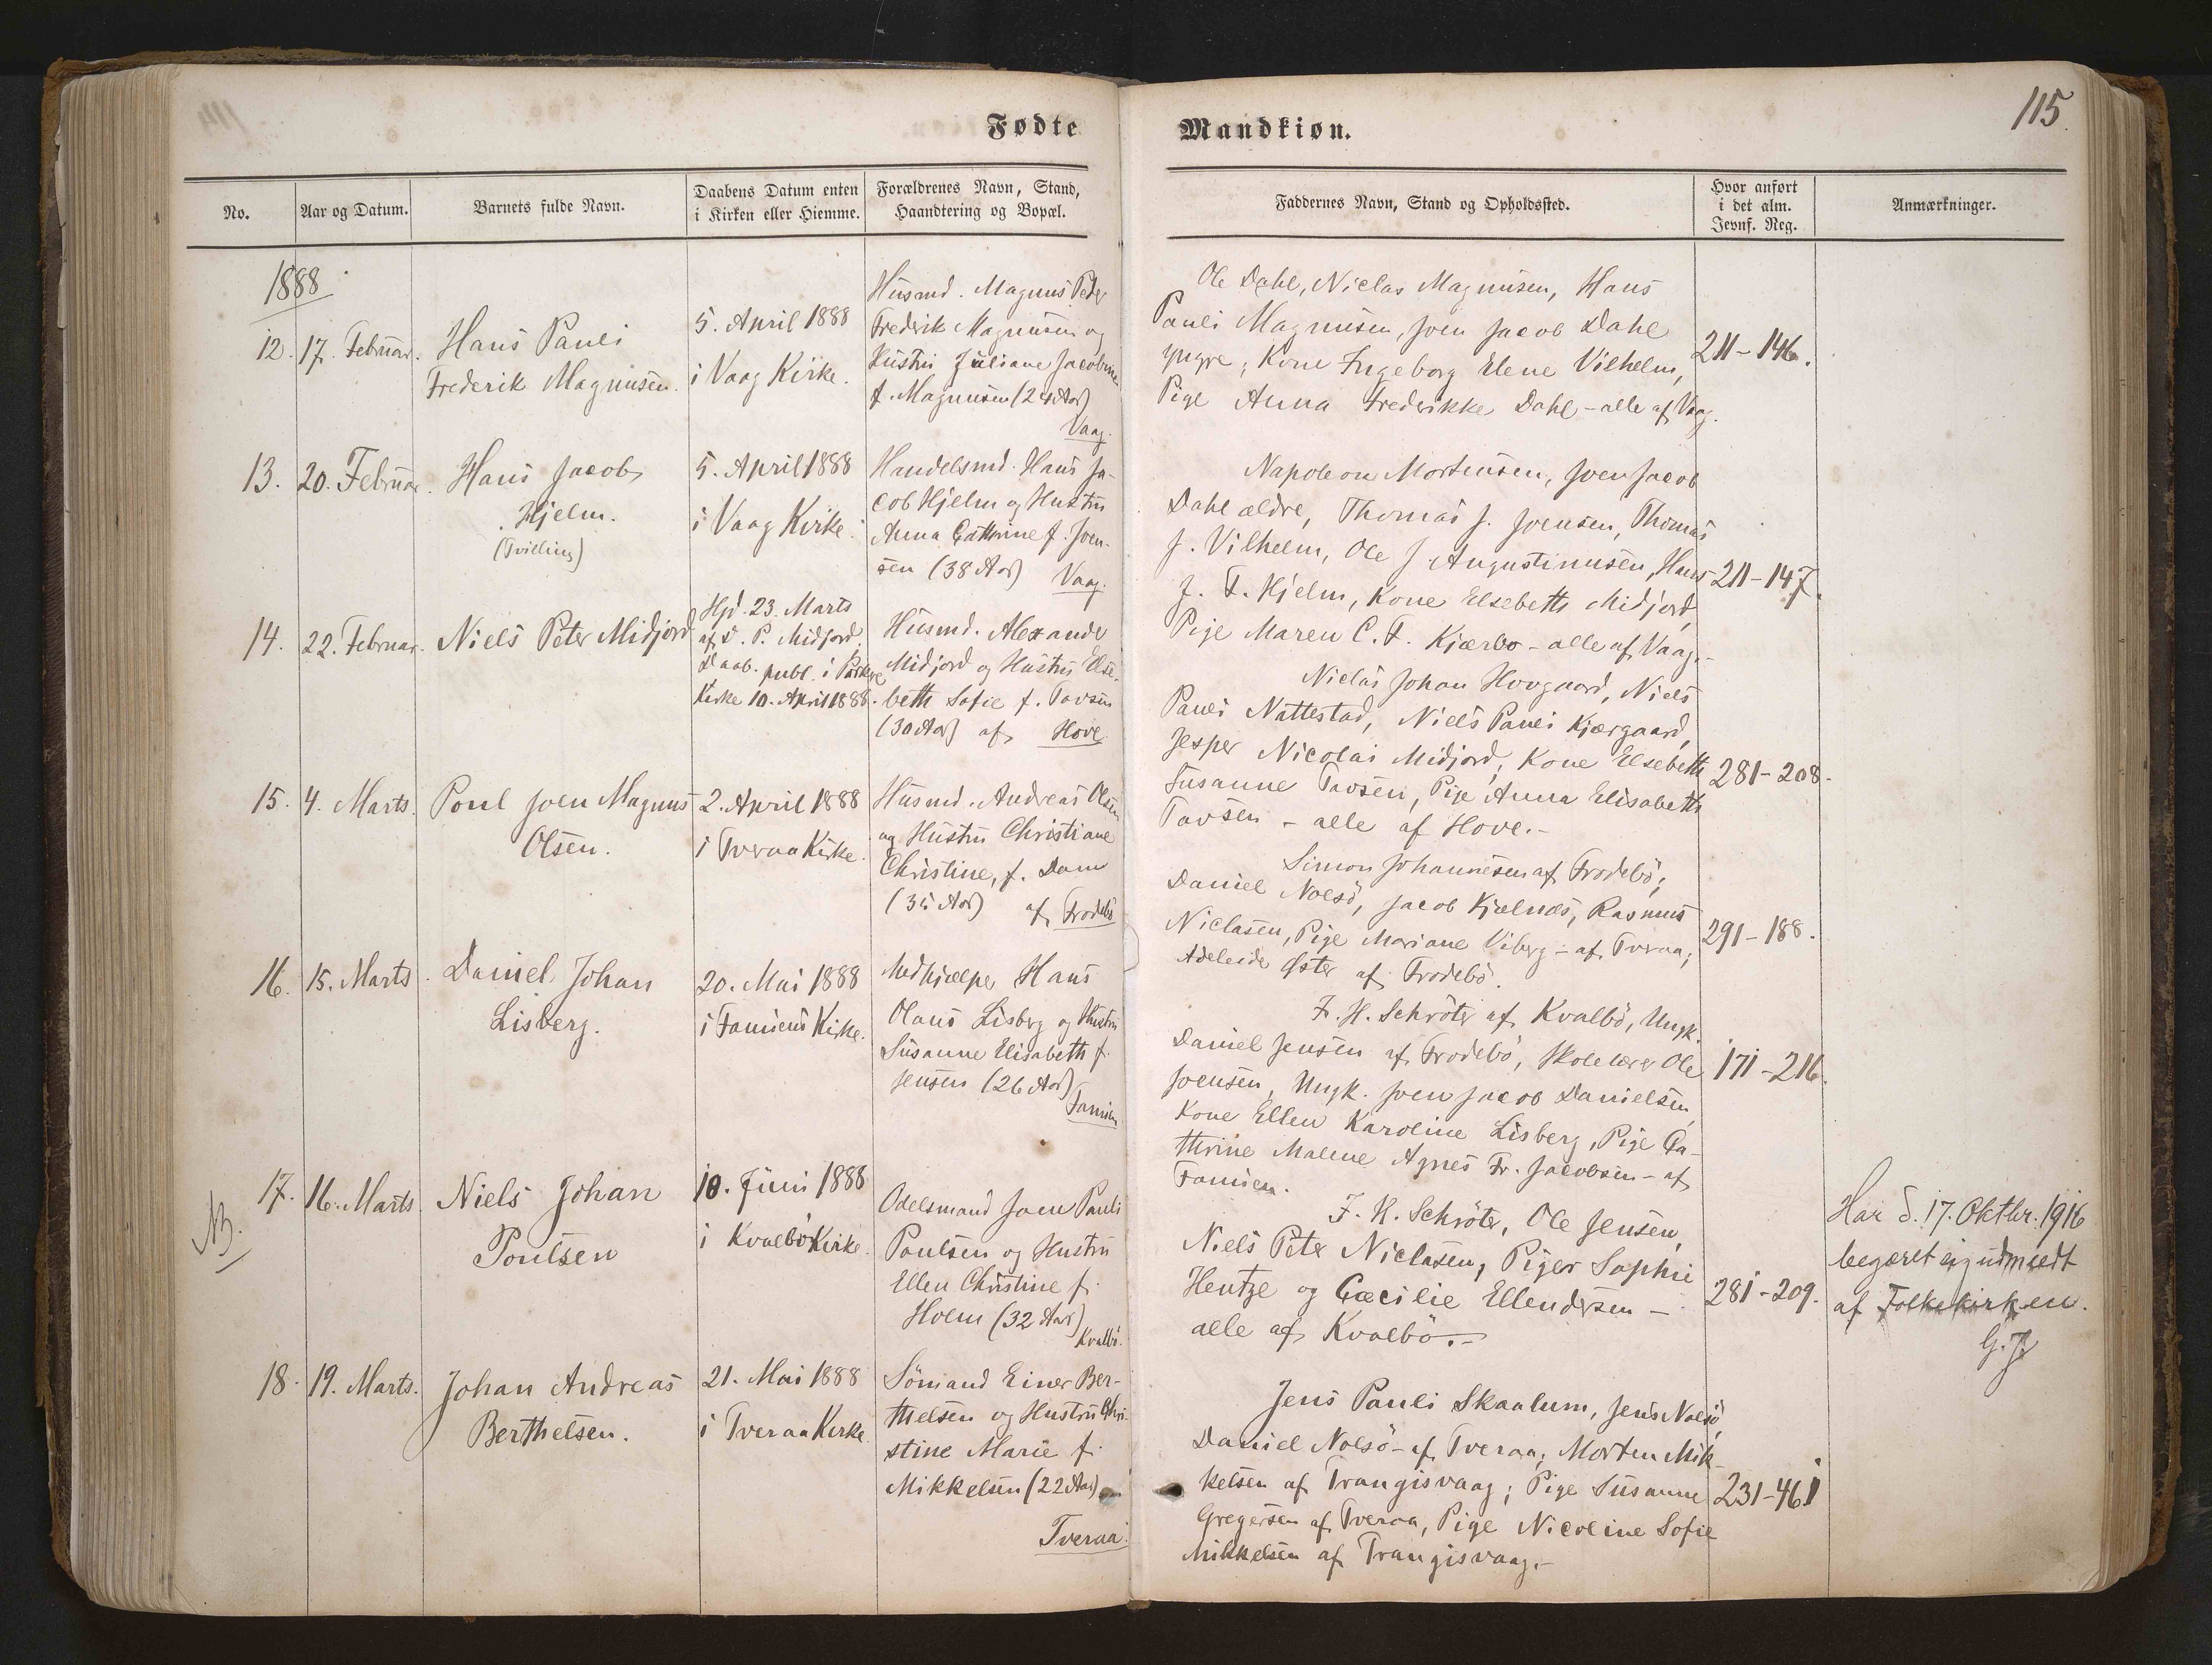 Fødte
Mandkiøn.
115
No.
Aar og Datum.
Barnets fulde Navn.
Daabens Datum enten
i Kirken eller Hiemme.
Forældrenes Navn, Stand,
Haandtering og Bopæl.
Faddernes Navn, Stand og Opholdssted.
Hvor anført
i det alm.
Jevnf. Reg.
Anmærkninger.
1888
12.
17. Februar.
Hans Pauli
Frederik Magnusen.
5. April 1888
i Vaag Kirke.
Husmd. Magnus Peder
Frederik Magnusen og
Hustru Juliane Jacobine
f. Magnusen (24 Aar)
Vaag.
Ole Dahl, Niclas Magnusen, Hans
Pauli Magnusen, Joen Jacob Dahl
yngre; Kone Ingeborg Elene Vilhelm,
Pige Anna Frederikke Dahl - alle af Vaag.
211-146.
13.
20. Februar.
Hans Jacob
Hjelm.
(Tvilling)
5. April 1888
i Vaag Kirke.
Handelsmd. Hans Ja-
cob Hjelm og Hustru
Anna Cathrine f. Joen-
sen (38 Aar) Vaag.
Napoleon Mortensen, Joen Jacob
Dahl ældre, Thomas J. Joensen, Thomas
J. Vilhelm, Ole J. Augustinusen, Hans
J. F. Hjelm, Kone Elsebeth Midjord,
Pige Maren C. F. Kjærbo - alle af Vaag.-
211-147.
14.
22. Februar.
Niels Peter Midjord
Hjd. 23. Marts
af D. P. Midjord,
Daab. publ. i Porkere
Kirke 10. April 1888.
Husmd. Alexander
Midjord og Hustru Else-
beth Sofie f. Tavsen
(30 Aar) af Hove.
Niclas Johan Hovgaard, Niels
Pauli Nattestad, Niels Pauli Kjærgaard,
Jesper Nicolai Midjord, Kone Elsebeth
Susanne Tavsen, Pige Anna Elisabeth
Tavsen - alle af Hove.-
281-208.
15.
4. Marts.
Poul Joen Magnus
Olsen.
2. April 1888
i Tveraa Kirke.
Husmd. Andreas Olsen
og Hustru Christiane
Christine, f. Dam
(35 Aar) af Frodebö
Simon Johannesen af Frodebö;
Daniel Nolsö, Jacob Kjælnæs, Rasmus
Niclasen, Pige Mariane Viberg - af Tveraa;
Adeleide Øster af Frodebö.
291-188.
16.
15. Marts.
Daniel Johan
Lisberg.
20. Mai 1888
i Famiens Kirke.
Medhjælper Hans
Olaus Lisberg og Hustru
Susanne Elisabeth f.
Jensen (26 Aar)
Famien
F. H. Schröter af Kvalbö, Ungk.
Daniel Jensen af Frodebö, Skolelærer Ole
Joensen, Ungk. Joen Jacob Danielsen,
Kone Ellen Karoline Lisberg, Pige Ca-
thrine Malene Agnes Fr. Jacobsen - af
Famien.
171-216.
NB.
17.
16. Marts.
Niels Johan
Poulsen
10. Juni 1888
i Kvalbö Kirke.
Odelsmand Joen Pauli
Poulsen og Hustru
Ellen Christine f.
Holm (32 Aar)
Kvalbö.
F. H. Schröter, Ole Jensen,
Niels Peter Niclasen, Piger Sophie
Hentze og Cæcilie Ellendersen -
alle af Kvalbö.-
281-209.
Har d. 17. Oktbr. 1916
begæret sig udmeldt
af Folkekirken.
18.
19. Marts.
Johan Andreas
Berthelsen.
21. Mai 1888
i Tveraa Kirke.
Sömand Einer Ber-
thelsen og Hustru Chri-
stine Marie f.
Mikkelsen (22 Aar)
Tveraa.
Jens Pauli Skaalum, Jens Nolsö,
Daniel Nolsö - af Tveraa, Morten Mik-
kelsen af Trangisvaag; Pige Susanne
Gregersen af Tveraa, Pige Nicoline Sofie
Mikkelsen af Trangisvaag.-
231-461